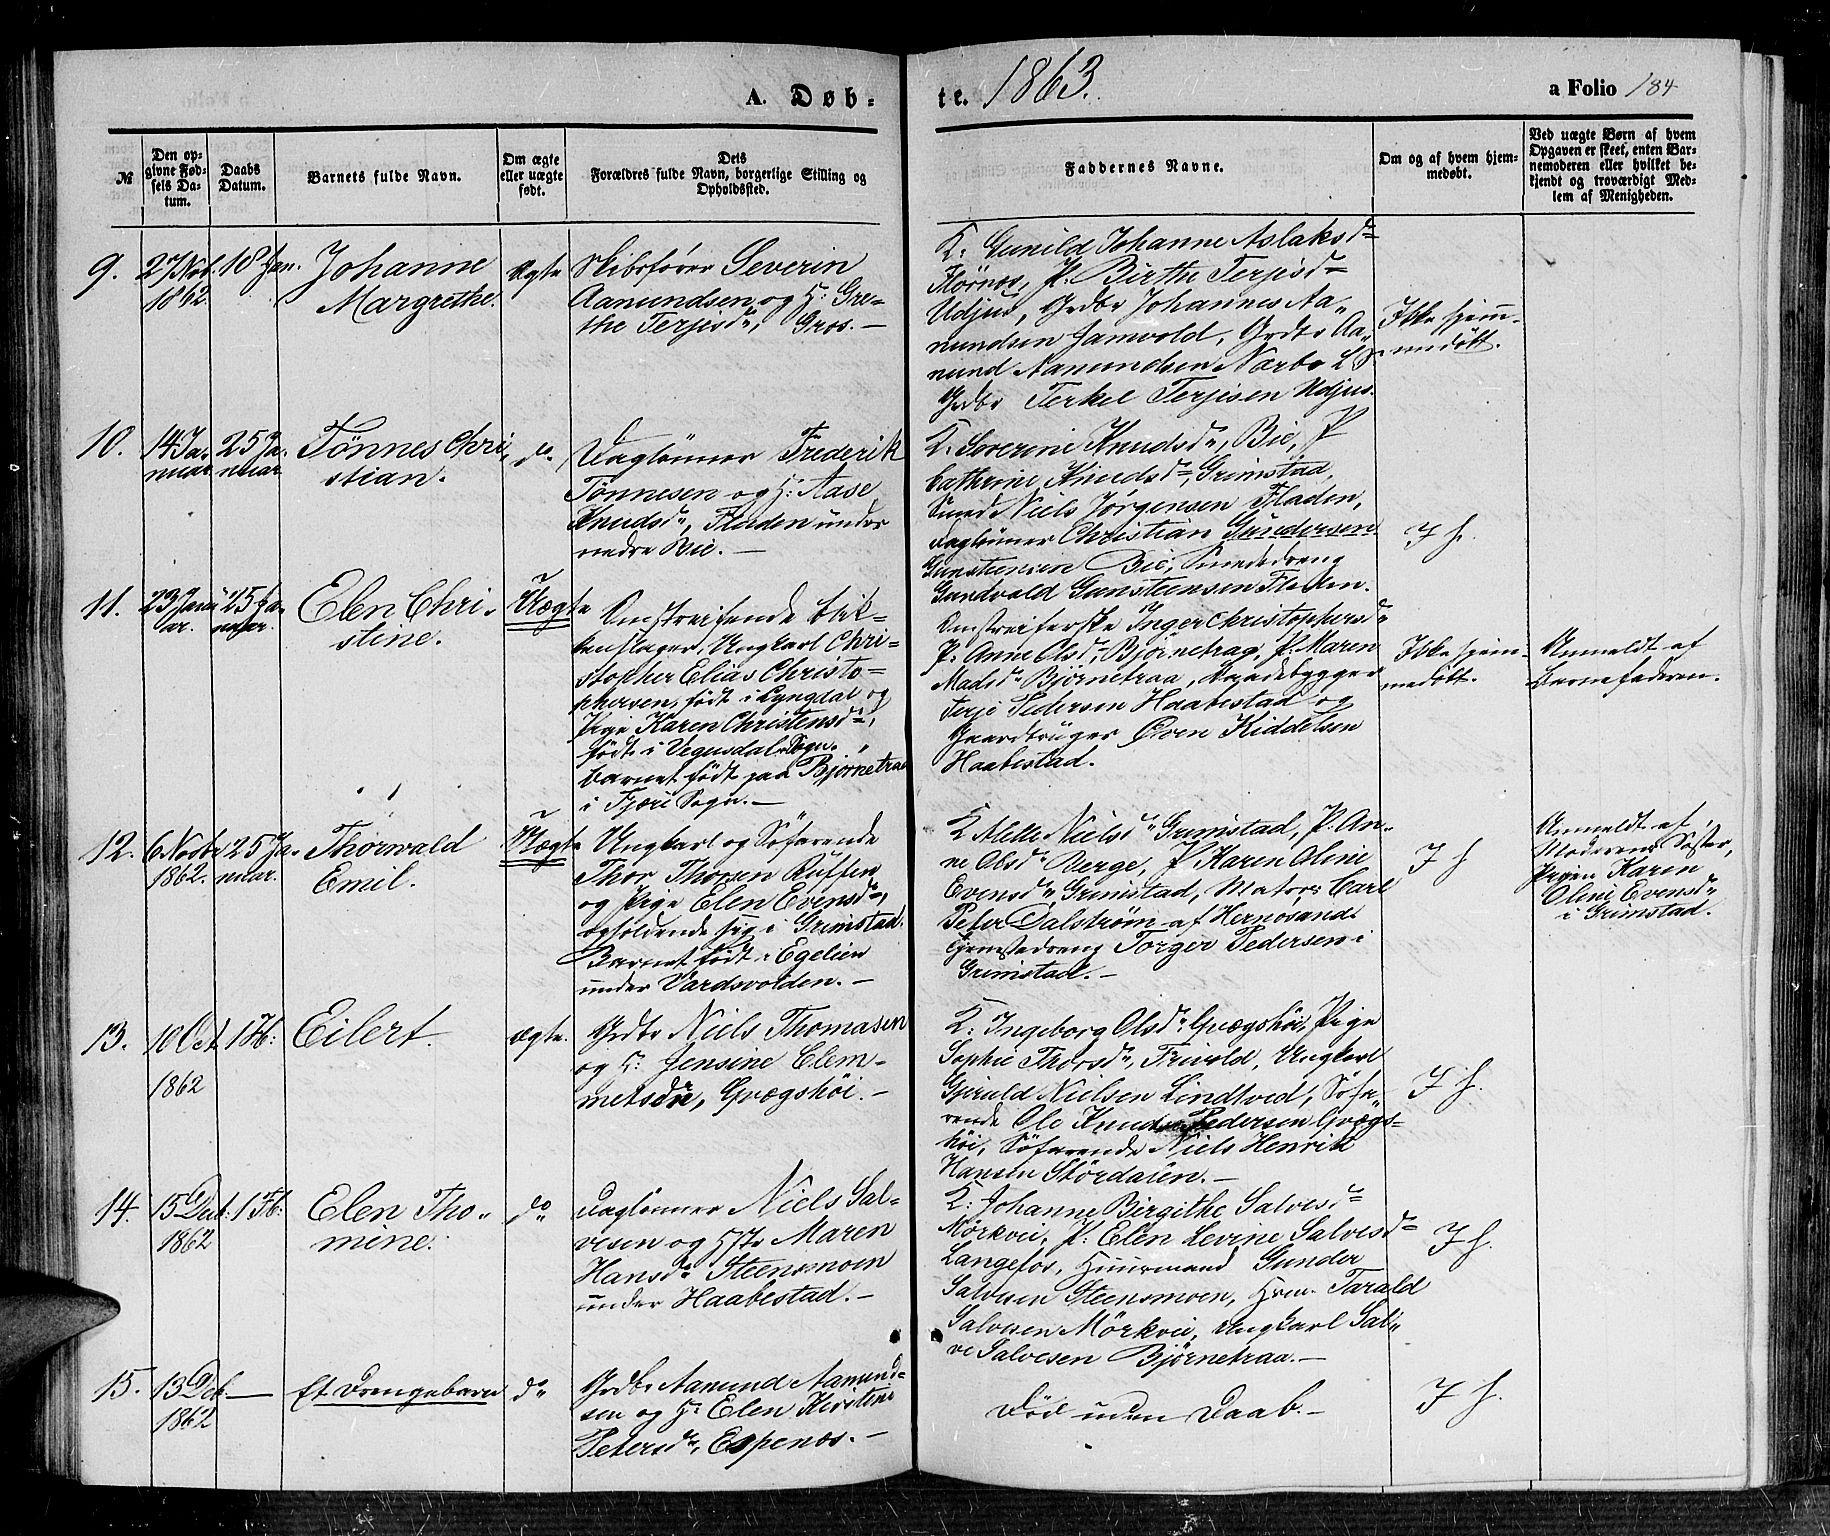 A. Døb-
te. 1863.
a Folio 184
№
Den op-
givne Fød-
sels Da-
tum.
Daabs
Datum.
Barnets fulde Navn.
Om ægte
eller uægte
født.
Dets
Forældres fulde Navn, borgerlige Stilling og
Opholdssted.
Faddernes Navne.
Om og af hvem hjem-
medøbt.
Ved uægte Børn af hvem
Opgaven er skeet, enten Bar-
nemoderen eller hvilket be-
kjendt og troværdigt Med-
lem af Menigheden.
9.
27 Nob.
1862
18 Jan.
Johanne
Margrethe.
ægte
Skibsfører Severin
Aamundsen og H: Gre-
the Terjesdr, Gros. —
K: Gunild Johanne Aslaksdr
Fjørnes, P. Birthe Terjesdr
Udjus, Grdbr Johannes Aa-
mundsen Jamvold, Grdbr Aa-
mund Aamundsen Nærbø
Grdbr Terkel Terjesen Udjus.
Ikke hjem-
medøbt.
10.
14 Ja-
nuar
25 Ja-
nuar.
Tønnes Chri-
stian.
do
Daglønner Frederik
Tønnesen og H: Aase
Knudsdr, Fladen under
nedre Bie. —
K: Severine Knudsdr, Bie, P
Cathrine Knudsdr, Grimstad,
Smed Niels Jørgensen Fladen,
Daglønner Christian Gundersen
Gunsteinsen Bie, Smededreng
Gundvald Gunsteensen Fladen.
I h.
11.
23 Janu-
ar.
25 Ja-
nuar.
Elen Chri-
stine.
Uægte
Omstreifende Blik-
kenslager, Ungkarl Chri-
stopher Elias Christo-
phersen, født i Lyngdal og
Pige Karen Christensdr,
født i Vegusdals Sogn.
Barnet født paa Bjørnetraa
i Fjære Sogn. —
Omstreiferske Inger Christophersdr
P: Anne Olsdr, Bjørnetrag, P. Maren
Madsdr Bjørnetraa,
Terje Pedersen Haabestad og
Gaardbruger Even Kiddelsen
Haabestad.
Ikke hjem-
medøbt.
Anmeldt af
Barnefaderen.
12.
6 Novbr
1862.
25 Ja-
nuar.
Thorwald
Emil.
Uægte
Ungkarl og Søfarende
Thor Thorsen Ruffen
og Pige Elen Evensdr,
opholdende sig i Grimstad.
Barnet født i Egelien
under Vardsvolden. —
K Nielsdr Grimstad, P: An-
ne Olsdr Berge, P Karen Oline
Evensdr Grimstad, Matros Carl
Peter Dalstrøm af Hernosand
Tjenestedreng Torger Pedersen i
Grimstad. —
I h
Anmeldt af
Moderens Søster,
Pigen Karen
Oline Evensdr
i Grimstad.
13.
10 Oct
1862
1 Fb:
Eilert.
ægte.
Grdbr Niels Thomasen
og H: Jensine Clem-
metsdr, Grægshøi. —
K: Ingeborg Olsdr Grægshøi, Pige
Sophie Thorsdr, Frivold, Ungkarl
Gjeruld Nielsen Lindtved, Søfa-
rende Ole Knud Pedersen Grægs-
høi, Søfarende Niels Henrik
Hansen Størdalen. —
I h.
14.
15 Deb:
1862
1 Fb:
Elen Tho-
mine.
do
Daglønner Niels Sal-
vesen og Hstr Maren
Hansdr Steensmoen
under Haabestad. —
K: Johanne Birgithe Salvesdr
Mørkvei, P: Elen Levine Salvesdr
Langefos, Huusmand Gunder
Salvesen Steensmoen, Hsm. Tarald
Salvesen Mørkvei, Ungkarl Sal-
ve Salvesen Bjørnetraa. —
I h.
15.
13 Deb
1862
—
Et Drengebarn
do
Grdbr Aamund Aamund-
sen og H: Elen Kirstine
Petersdr, Espenæs. —
Død uden Daab. —
I h.